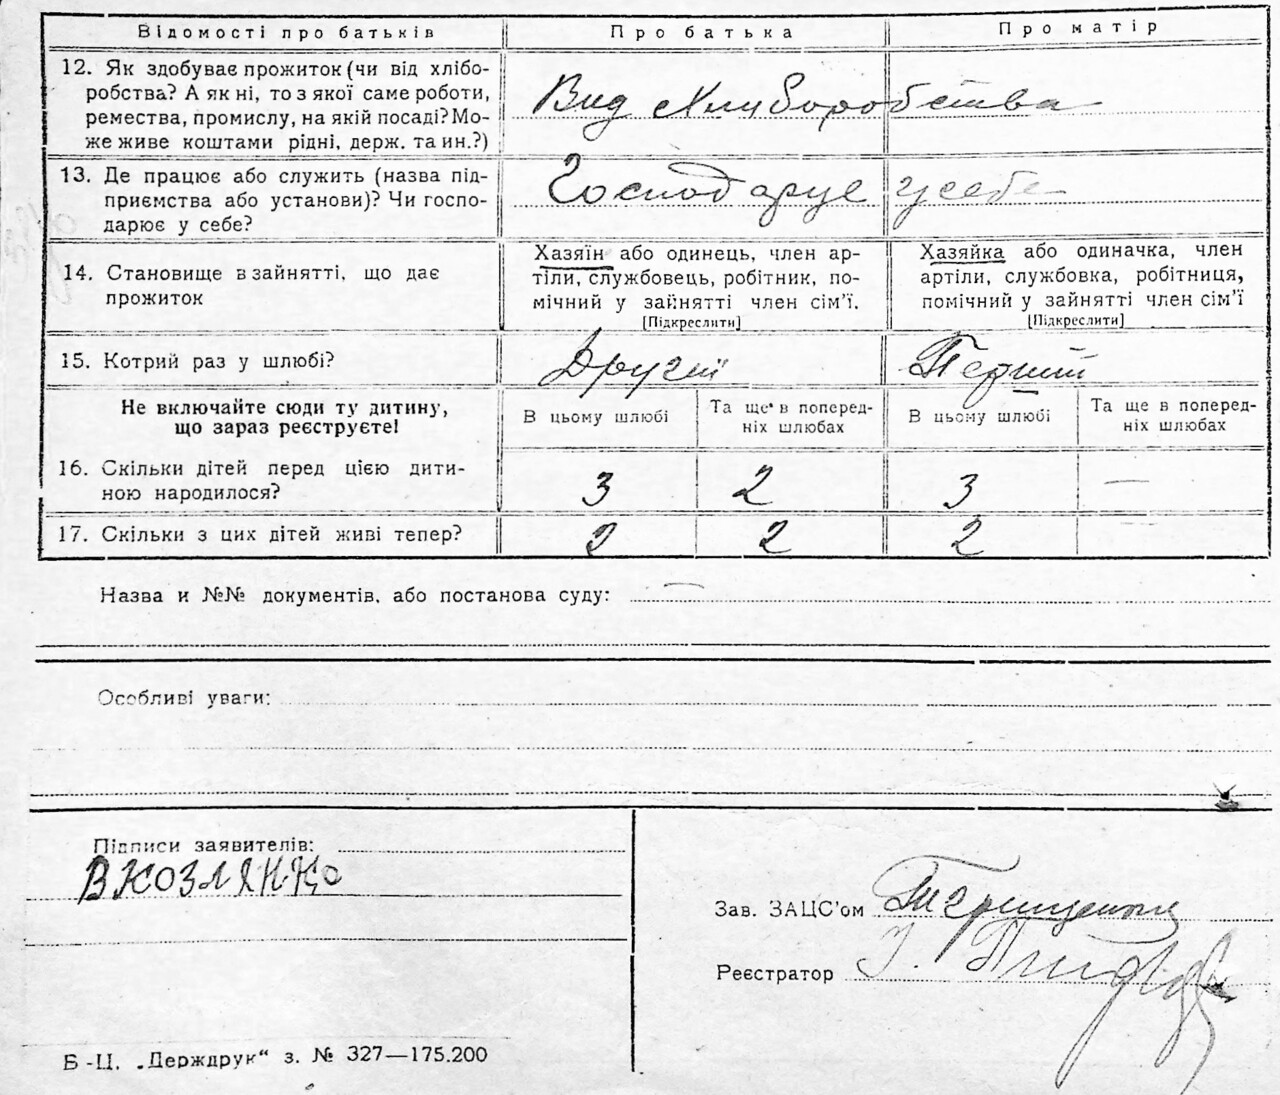 Відомості про батьків Про батька Про матір
12. Як здобуває прожиток (чи від хлібо-
робства? А як ні, то з якої саме роботи,
ремества, промислу, на якій посаді? Мо-
же живе коштами рідні, держ. та ин.?)
Вид Хлиборобства
13. Де працює або служить (назва під-
приємства або установи)? Чи госпо-
дарює у себе?
Господарує у себе
14. Становище в зайнятті, що дає
прожиток
Хазяїн або одинець, член ар-
тіли, службовець, робітник, по-
мічний у зайнятті член сім'ї.
[Підкреслити]
Хазяйка або одиначка, член
артіли, службовка, робітниця,
помічний у зайнятті член сім'ї
[Підкреслити]
15. Котрий раз у шлюбі? Другий Перший
Не включайте сюди ту дитину,
що зараз реєструєте!
В цьому шлюбі
Та ще в поперед-
ніх шлюбах
В цьому шлюбі
Та ще в поперед-
ніх шлюбах
16. Скільки дітей перед цією дити-
ною народилося?
3 2 3 —
17. Скільки з цих дітей живі тепер? 2 2 2
Назва и №№ документів, або постанова суду: —
Особливі уваги:
Підписи заявителів:
В КОЗЛЯНКО
Зав. ЗАЦС'ом
Реєстратор
Б-Ц. „Держдрук“ з. № 327—175.200